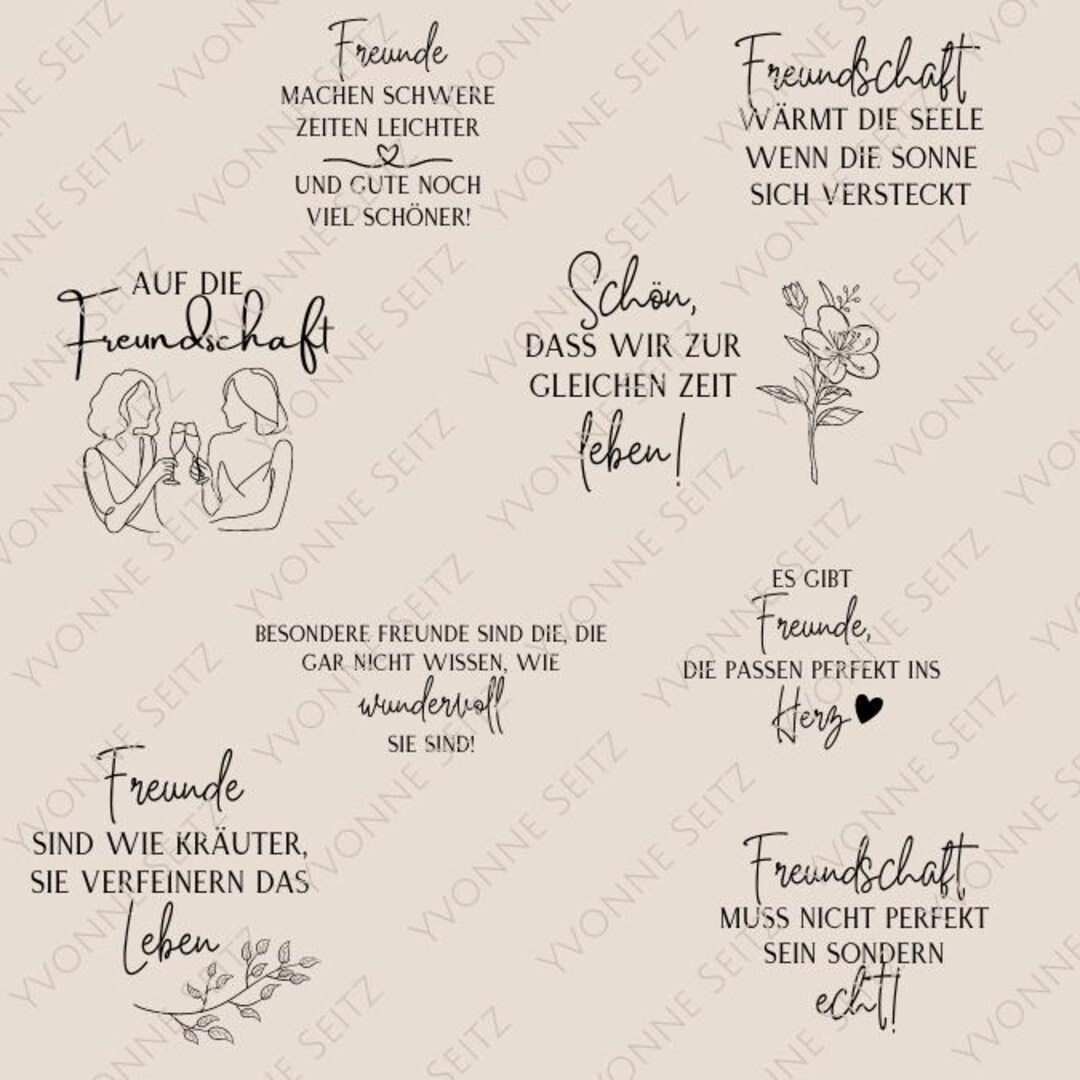 Freunde
MACHEN SCHWERE
ZEITEN LEICHTER
UND GUTE NOCH
VIEL SCHÖNER!
Freundschaft
WÄRMT DIE SEELE
WENN DIE SONNE
SICH VERSTECKT
AUF DIE
Freundschaft
Schön,
DASS WIR ZUR
GLEICHEN ZEIT
leben!
BESONDERE FREUNDE SIND DIE, DIE
GAR NICHT WISSEN, WIE
wundervoll
SIE SIND!
ES GIBT
Freunde,
DIE PASSEN PERFEKT INS
Herz
Freunde
SIND WIE KRÄUTER,
SIE VERFEINERN DAS
Leben
Freundschaft
MUSS NICHT PERFEKT
SEIN SONDERN
echt!
YVONNE SEITZ